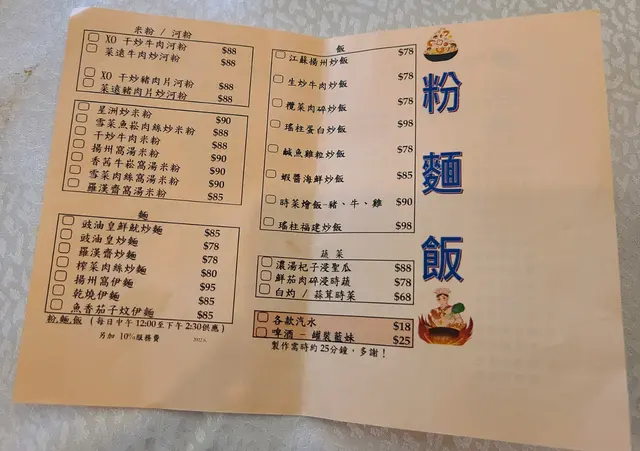 米粉 / 河粉
XO 干炒牛肉河粉 $88
菜遠牛肉炒河粉 $88
XO 干炒豬肉片河粉 $88
菜遠豬肉片炒河粉 $88
星洲炒米粉 $90
雪菜魚崧肉絲炒米粉 $88
干炒牛肉米粉 $88
揚州窩湯米粉 $90
香茜牛崧窩湯米粉 $90
雪菜肉絲窩湯米粉 $90
羅漢齋窩湯米粉 $85
麵
豉油皇鮮魷炒麵 $85
豉油皇炒麵 $78
羅漢齋炒麵 $78
榨菜肉絲炒麵 $80
揚州窩伊麵 $95
乾燒伊麵 $85
魚香茄子炆伊麵 $85
粉,麵,飯 (每日中午 12:00至下午 2:30供應)
另加 10%服務費
飯
江蘇揚州炒飯 $78
生炒牛肉炒飯 $78
欖菜肉碎炒飯 $78
瑤柱蛋白炒飯 $98
鹹魚雞粒炒飯 $78
蝦醬海鮮炒飯 $85
時菜燴飯-豬、牛、雞 $90
瑤柱福建炒飯 $98
蔬菜
濃湯杞子浸聖瓜 $88
鮮茄肉碎浸時蔬 $78
白灼 / 蒜茸時菜 $68
各款汽水 $18
啤酒 - 罐裝藍妹 $25
製作需時約 25分鐘，多謝！
粉
麵
飯